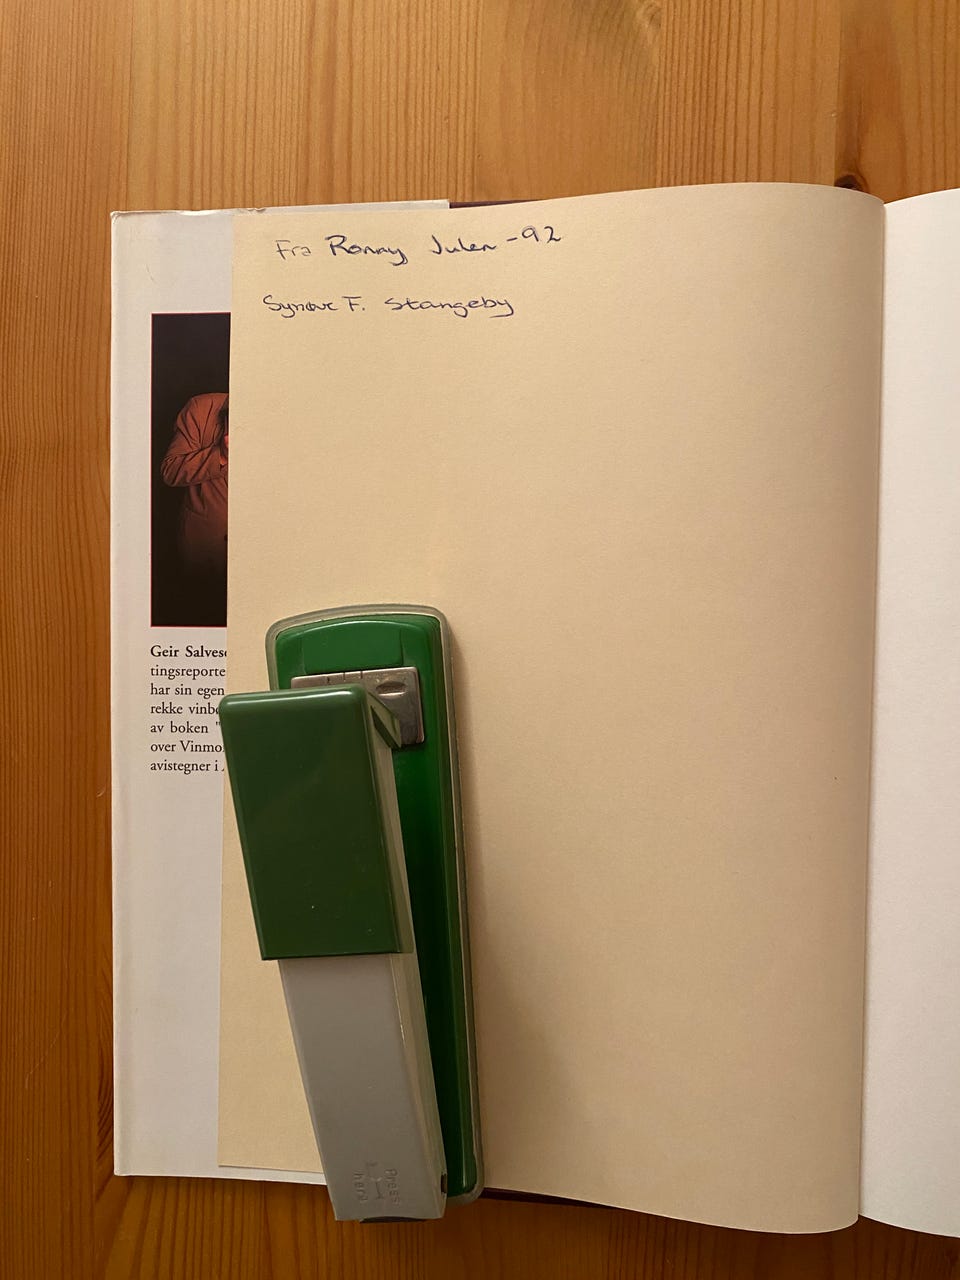 Fra Ronny Julen - 92
Synøve F. Stangeby
Geir Salvese
tingsreporte
har sin egen
rekke vinbø
av boken "
over Vinmo
avistegner i
Press
here